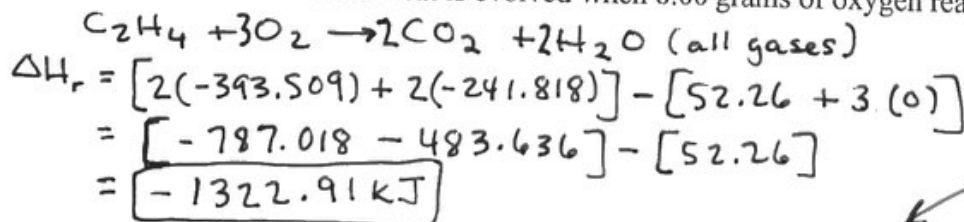 evolved when 6.00 grams of oxygen rea
C₂H₄ +3O₂ →2CO₂ +2H₂O (all gases)
ΔHᵣ = [2(-393.509) + 2(-241.818)] - [52.26 + 3(0)]
= [-787.018 - 483.636] - [52.26]
= -1322.91 kJ